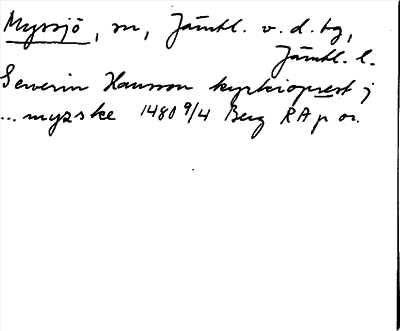 Myssjö, sn, Jämtl. v. d. tg,
Jämtl. l.
Severin Hansson kyrkioprest j
... myzske 1480 9/4 Berg RA p or.